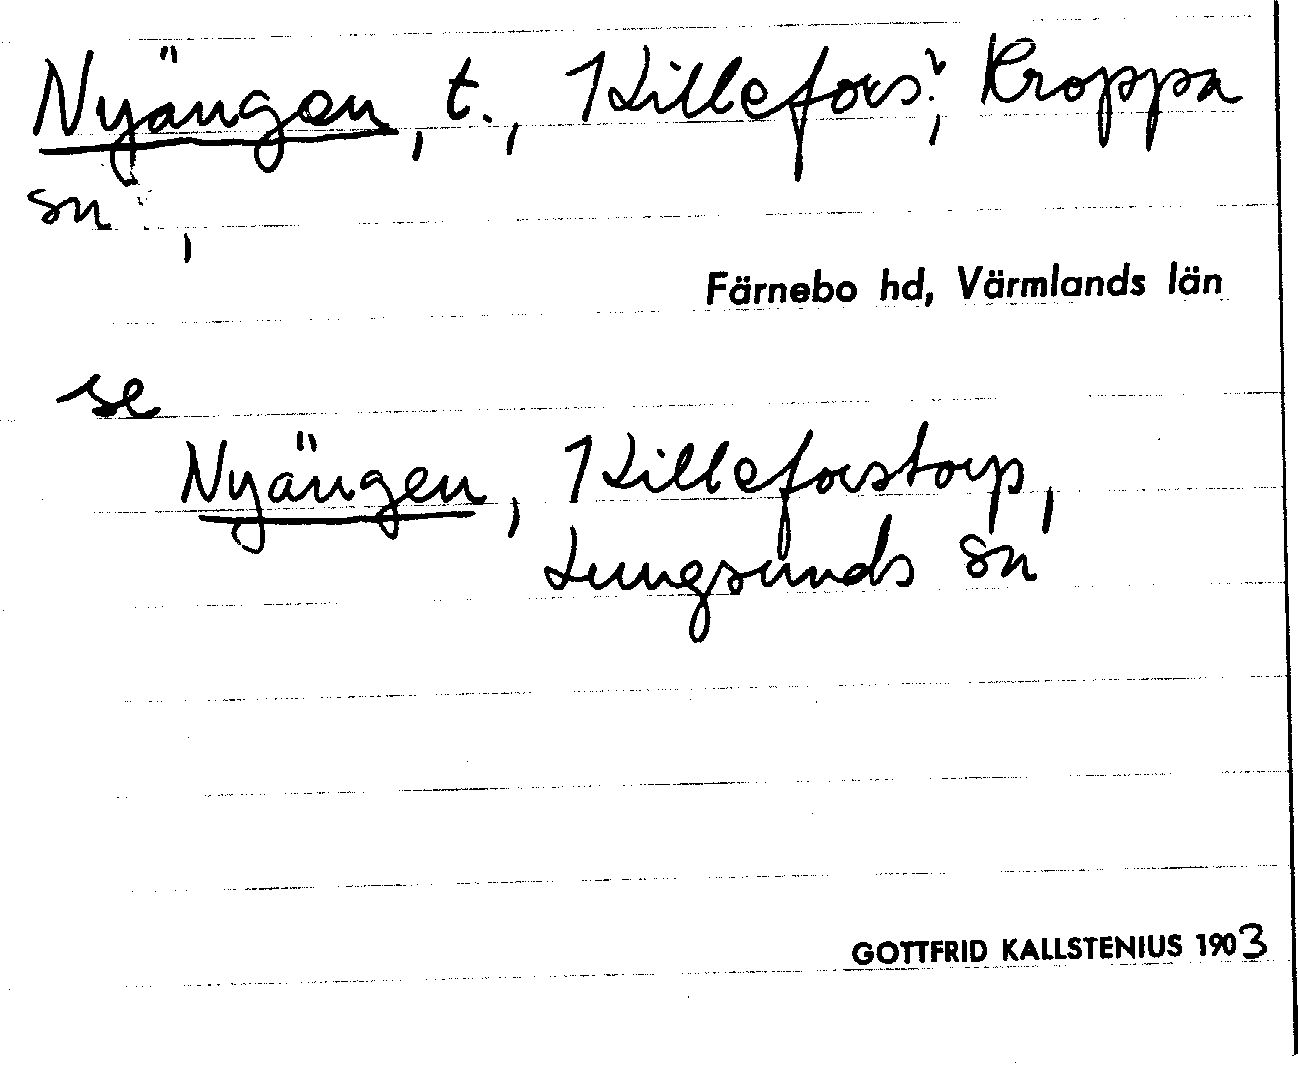 Nyängen, t., Killefors:, Kroppa
sn,
Färnebo hd, Värmlands län
se
Nyängen, Killeforstorp,
Lungsunds sn
GOTTFRID KALLSTENIUS 1903